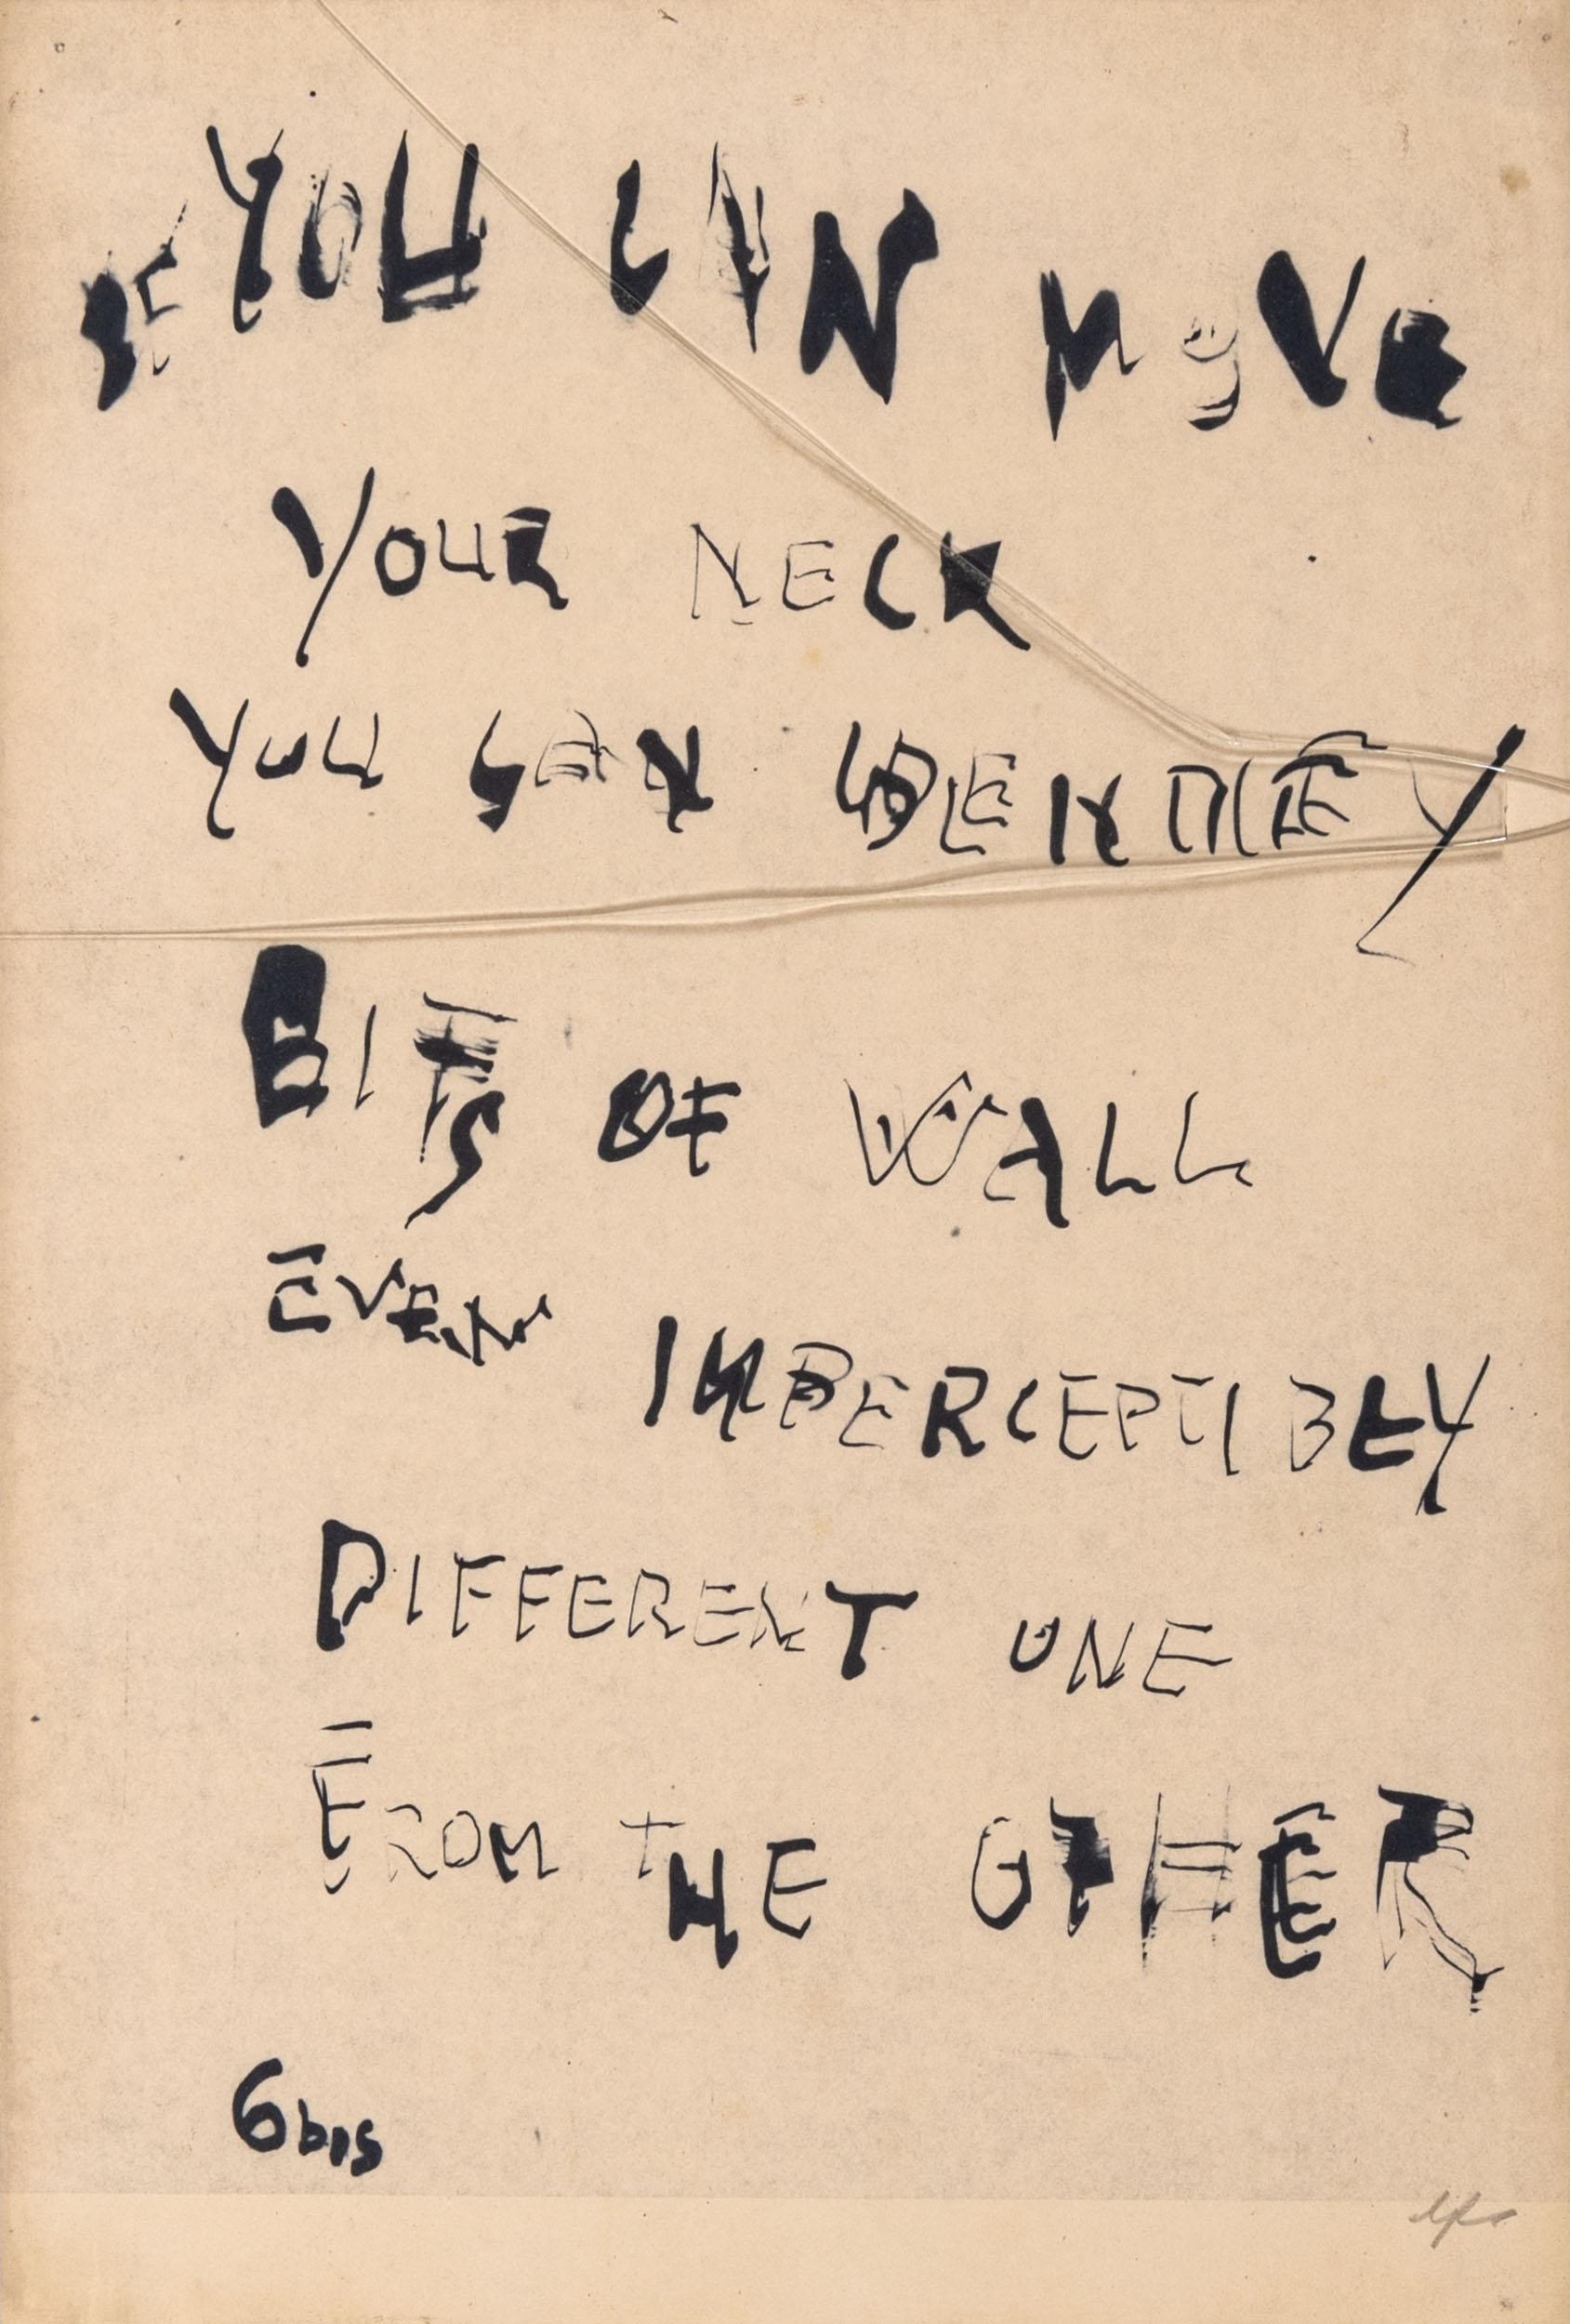 IF YOU CAN MOVE
YOUR NECK
YOU CAN IDENTIFY
BITS OF WALL
EVEN IMPERCEPTIBLY
DIFFERENT ONE
FROM THE OTHER
6bis